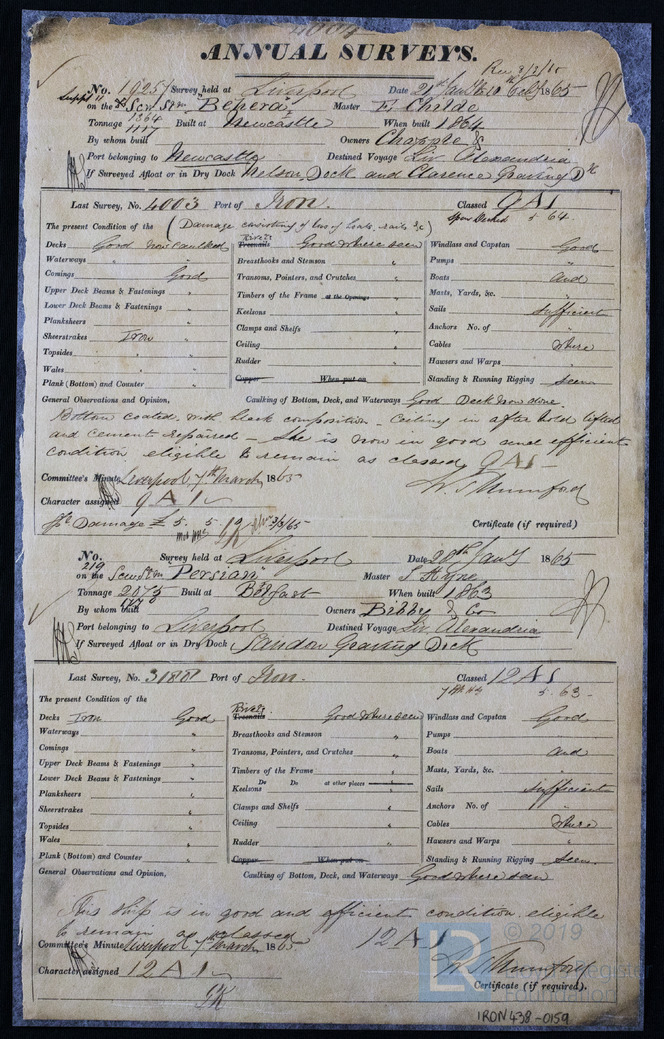 4004
ANNUAL SURVEYS.
Rec 8/3/65
No. 1925 Survey held at Liverpool Date 21st Jan & 10th Feby 1865
on the Scw Stm "Behera" Master Childe
Tonnage 1364 Built at Newcastle When built 1864
1117
By whom built Owners Chapple &
Port belonging to Newcastle Destined Voyage Liv. Alexandria
If Surveyed Afloat or in Dry Dock Nelson Dock and Clarence Graving Dk
Last Survey, No. 4003 Port of Iron. Classed 9 A1
Spar Decked 5 64
The present Condition of the (Damage consisting of loss of boats, rails &c)
Decks Good now caulked
Waterways " "
Comings Good
Upper Deck Beams & Fastenings "
Lower Deck Beams & Fastenings "
Planksheers "
Sheerstrakes Iron "
Topsides "
Wales "
Plank (Bottom) and Counter "
Rivets
Treenails Good where seen
Breasthooks and Stemson "
Transoms, Pointers, and Crutches "
Timbers of the Frame at the Openings "
Keelsons "
Clamps and Shelfs "
Ceiling "
Rudder "
Copper When put on
Windlass and Capstan Good
Pumps "
Boats and
Masts, Yards, &c. "
Sails sufficient
Anchors No. of "
Cables where
Hawsers and Warps "
Standing & Running Rigging seen
General Observations and Opinion, Caulking of Bottom, Deck, and Waterways Good Deck now done
Bottom coated with black composition - Ceiling in after hold lifted
and cement repaired - She is now in good and efficient
condition eligible to remain as classed 9 A1 -
Committee's Minute Liverpool 7th March 1865
Character assigned 9 A1
W. T. Mumford
Damage £ 5. 5 3/3/65
Certificate (if required)
No. 219 Survey held at Liverpool Date 28th Jany 1865
on the Scw Stm "Persian" Master Hyne
Tonnage 2075 Built at Belfast When built 1863
By whom built Owners Bibby & Co
Port belonging to Liverpool Destined Voyage Liv. Alexandria
If Surveyed Afloat or in Dry Dock Sandon Graving Dock
Last Survey, No. Port of Iron. Classed 12 A1
5. 63 -
The present Condition of the
Decks Iron Good
Waterways "
Comings "
Upper Deck Beams & Fastenings "
Lower Deck Beams & Fastenings "
Planksheers "
Sheerstrakes "
Topsides "
Wales "
Plank (Bottom) and Counter "
Rivets
Treenails Good where seen
Breasthooks and Stemson "
Transoms, Pointers, and Crutches "
Timbers of the Frame "
Do Do at other places
Keelsons "
Clamps and Shelfs "
Ceiling "
Rudder "
Copper When put on
Windlass and Capstan Good
Pumps "
Boats and
Masts, Yards, &c. "
Sails sufficient
Anchors No. of "
Cables where
Hawsers and Warps "
Standing & Running Rigging seen.
General Observations and Opinion, Caulking of Bottom, Deck, and Waterways Good where seen
This ship is in good and efficient condition, eligible
to remain as classed 12 A1
Committee's Minute Liverpool 7th March 1865
W. T. Mumford
Character assigned 12 A1
Certificate (if required).
© 2019
Lloyd's Register
Foundation
LR
IRON438-0159